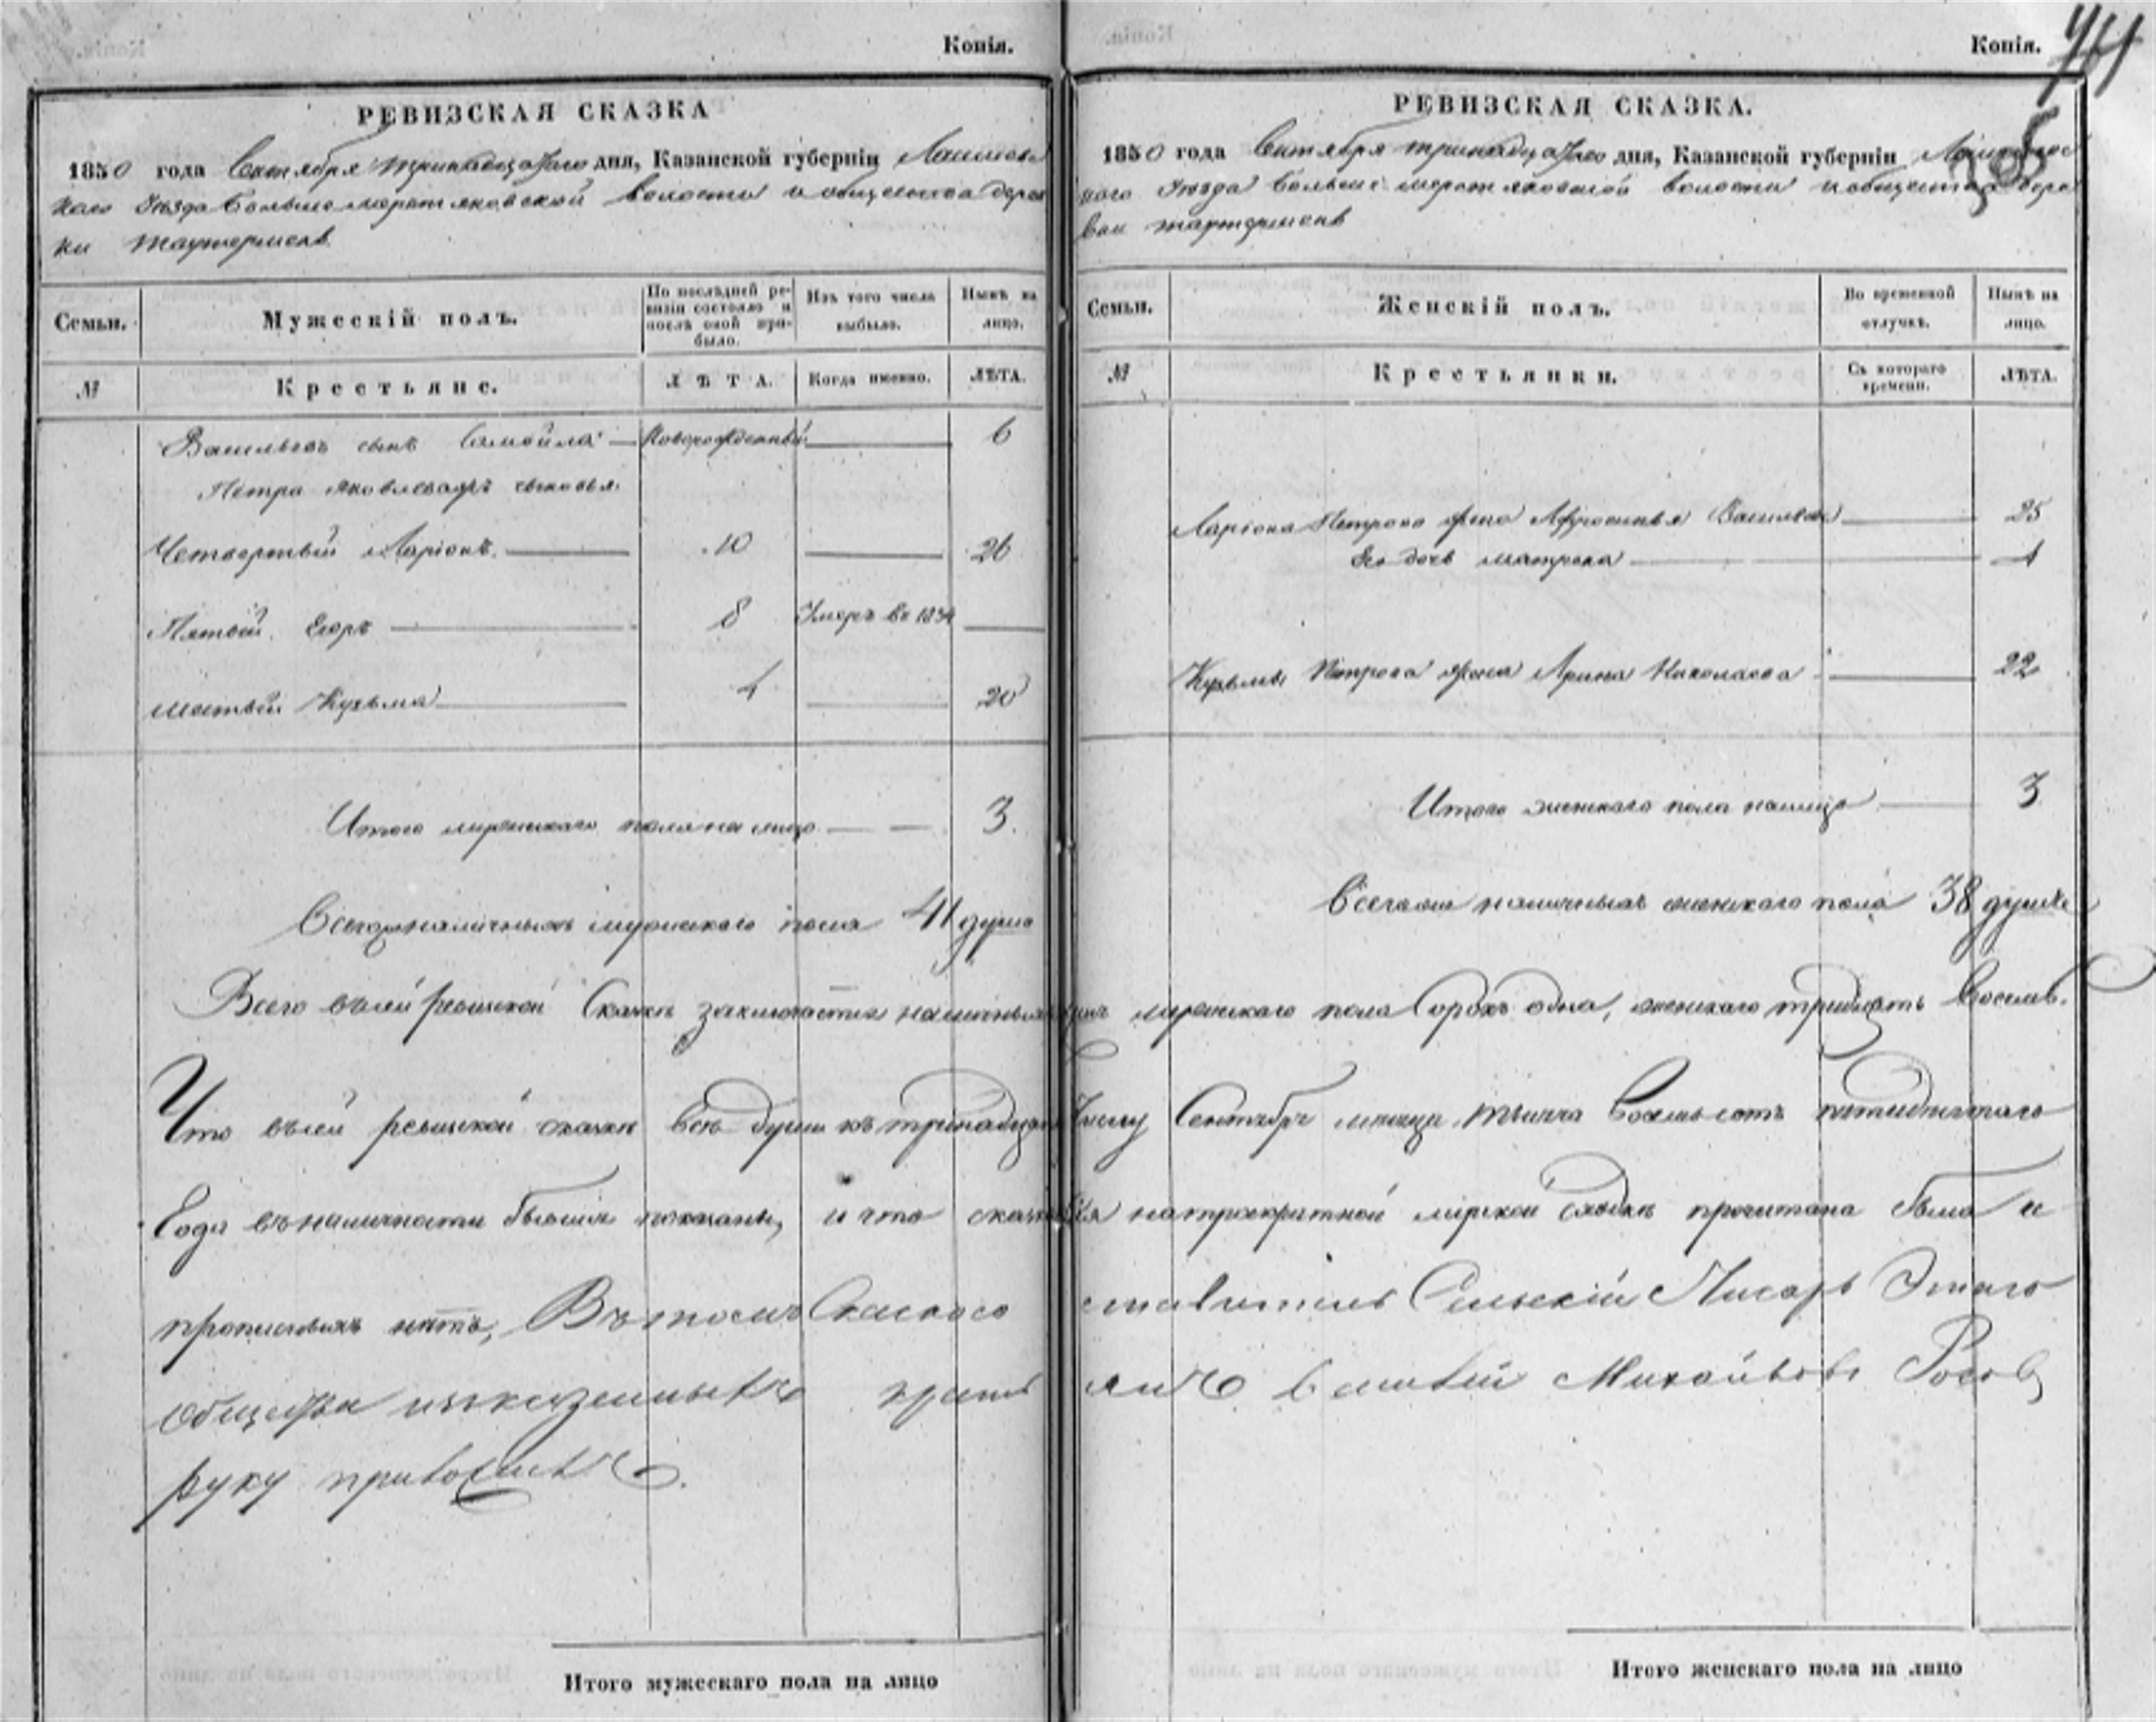 Копія.
РЕВИЗСКАЯ СКАЗКА
1850 года Сентября тринадцатаго дня, Казанской губерніи Лаишевс
каго Уѣзда волости и общества дерев
ни
Семьи.
Мужескій полъ.
По послѣдней ре-
визіи состояло и
послѣ оной при-
было.
Изъ того числа
выбыло.
Нынѣ на
лицо.
№
Крестьяне.
ЛѢТА.
Когда именно.
ЛѢТА.
Васильевъ сынъ Самойла Новорожденный 6
Петра Яковлева сыновья
Четвертый Ларіонъ 10 26
Пятый Егоръ 8 Умеръ въ 1834
шестый Кузьма 4 20
Итого мужескаго пола на лицо 3.
наличныхъ мужескаго пола 41 душа
Итого мужескаго пола на лицо
Копія.
РЕВИЗСКАЯ СКАЗКА.
1850 года Сентября тринадцатаго дня, Казанской губерніи
каго Уѣзда волости и общества дере
вни
Семьи.
Женскій полъ.
Во временной
отлучкѣ.
Нынѣ на
лицо.
№
Крестьянки.
Съ котораго
времени.
ЛѢТА.
Ларіона Петрова жена Афросинья Васильева 25
Его дочь матрена
Кузьмы Петрова жена Арина Николаева 22
Итого женскаго пола налицо 3
наличныхъ женскаго пола 38 душъ
Всего въ сей ревизской Сказкѣ заключается наличныхъ душъ мужескаго пола Сорокъ одна, женскаго тридцать восемь.
Что въ сей ревизской сказкѣ всѣ души къ числу Сентября мѣсяца тысяча восемьсотъ пятидесятаго
Года въ наличности бывшія показаны, и что сказка сія на мірской сходкѣ прочитана была и
прописныхъ нѣтъ, Въ томъ Сельскій Писарь Этаго
Михайловъ
руку приложилъ.
Итого женскаго пола на лицо